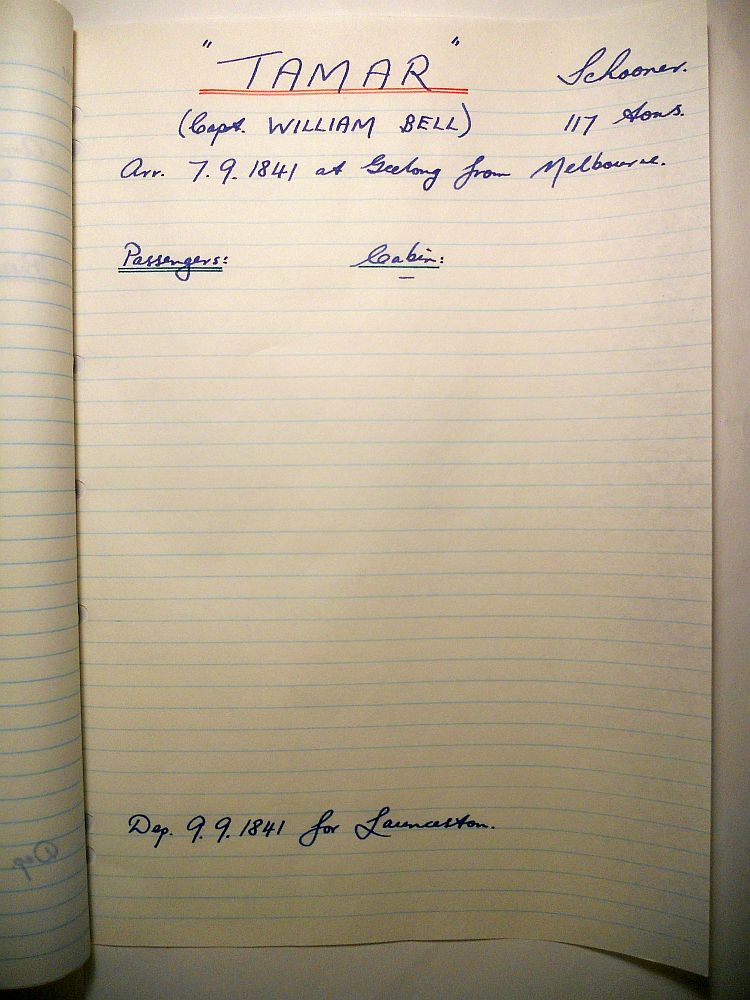 "TAMAR" Schooner.
(Capt. WILLIAM BELL) 117 tons.
Arr. 7.9.1841 at Geelong from Melbourne.
Passengers: Cabin:
Dep. 9.9.1841 for Launceston.